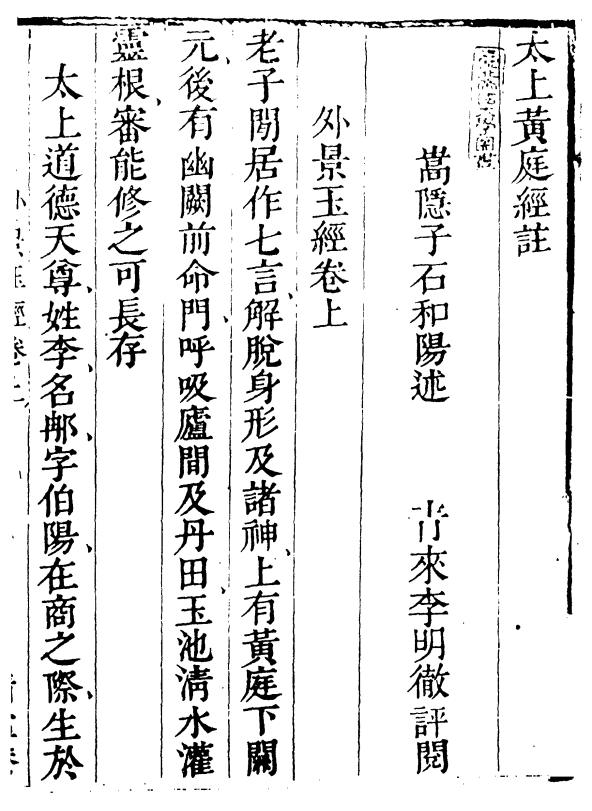 太上黃庭經註
嵩隱子石和陽述　青來李明徹評閱
外景玉經卷上
老子閒居作七言解脫身形及諸神上有黃庭下關
元後有幽闕前命門呼吸廬間及丹田玉池清水灌
靈根審能修之可長存
太上道德天尊姓李名𨚗字伯陽在商之際生於
外景玉經卷上